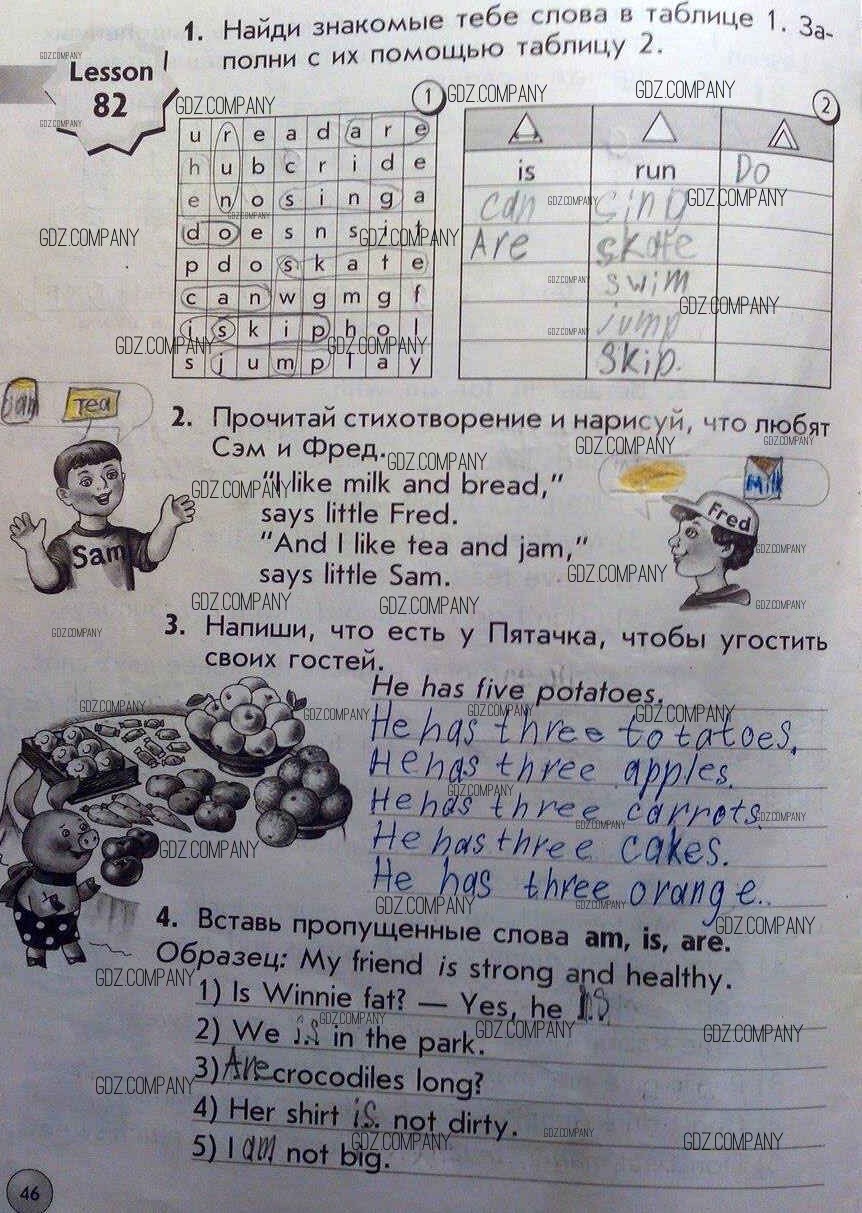 1. Найди знакомые тебе слова в таблице 1. За-
полни с их помощью таблицу 2.
Lesson
82
GDZ.COMPANY
1
2
u r e a d a r e
h u b c r i d e
e n o s i n g a
d o e s n s i t
p d o s k a t e
c a n w g m g f
i s k i p h o l
s j u m p l a y
is run Do
can sing
Are skate
swim
jump
Skip.
Jam Tea
2. Прочитай стихотворение и нарисуй, что любят
Сэм и Фред.
"I like milk and bread,"
says little Fred.
"And I like tea and jam,"
says little Sam.
Sam
Milk
Fred
3. Напиши, что есть у Пятачка, чтобы угостить
своих гостей.
He has five potatoes.
He has three totatoes.
He has three apples.
He has three carrots.
He has three cakes.
He has three orange..
4. Вставь пропущенные слова am, is, are.
Образец: My friend is strong and healthy.
1) Is Winnie fat? — Yes, he is
2) We is in the park.
3) Are crocodiles long?
4) Her shirt is not dirty.
5) I am not big.
46